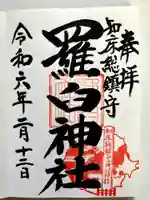 奉拝
知床総鎮守
羅臼神社
令和六年二月十二日